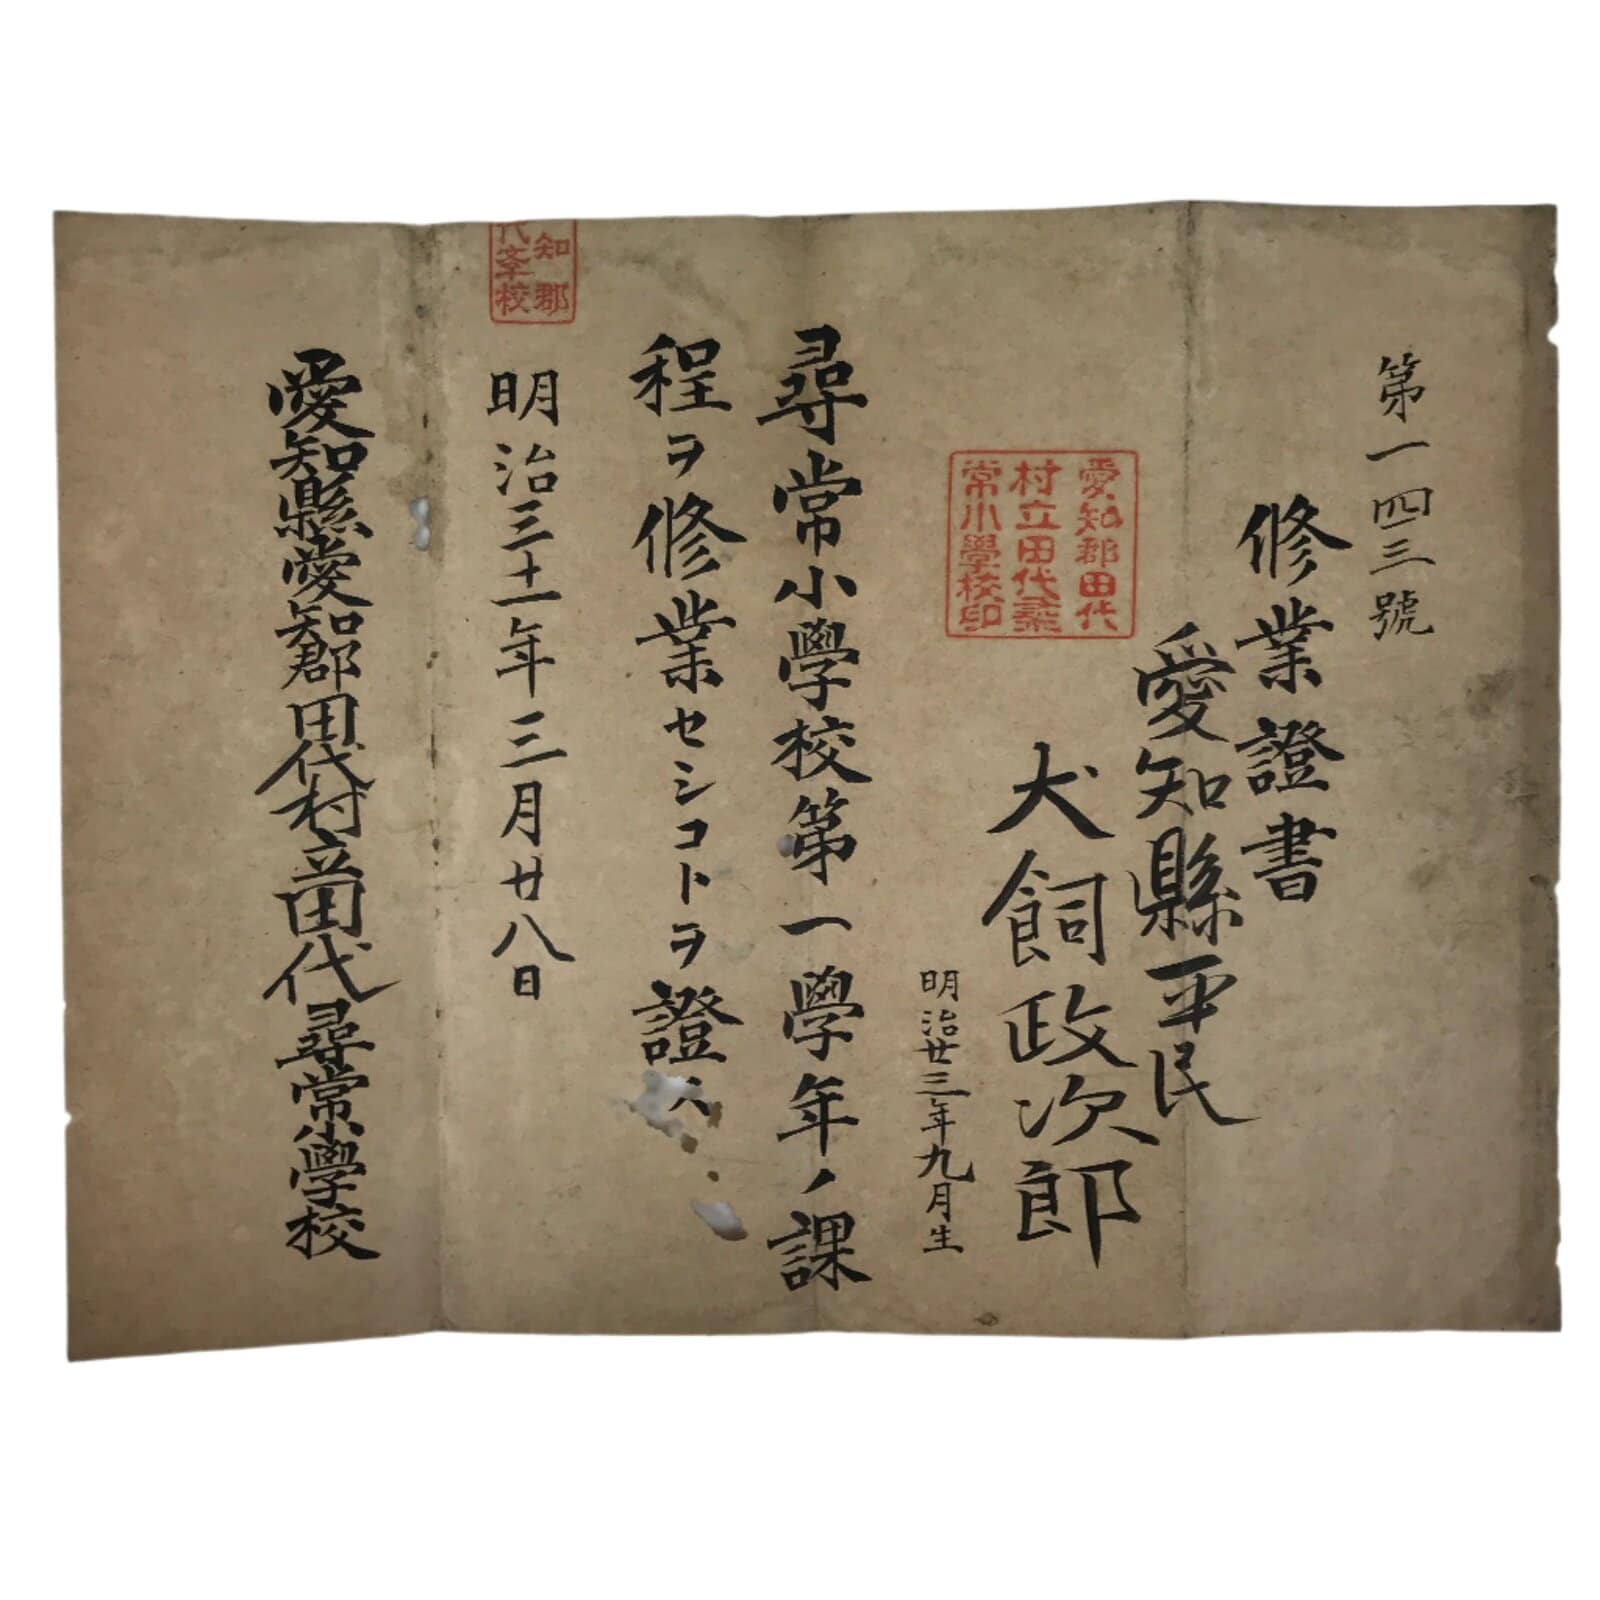 第一四三號
修業證書
愛知縣平民
犬飼政次郎
明治廿三年九月生
尋常小學校第一學年ノ課
程ヲ修業セシコトヲ證ス
明治三十一年三月廿八日
愛知縣愛知郡田代村立田代尋常小學校
愛知郡田代
村立田代尋
常小學校印
知郡
代
校